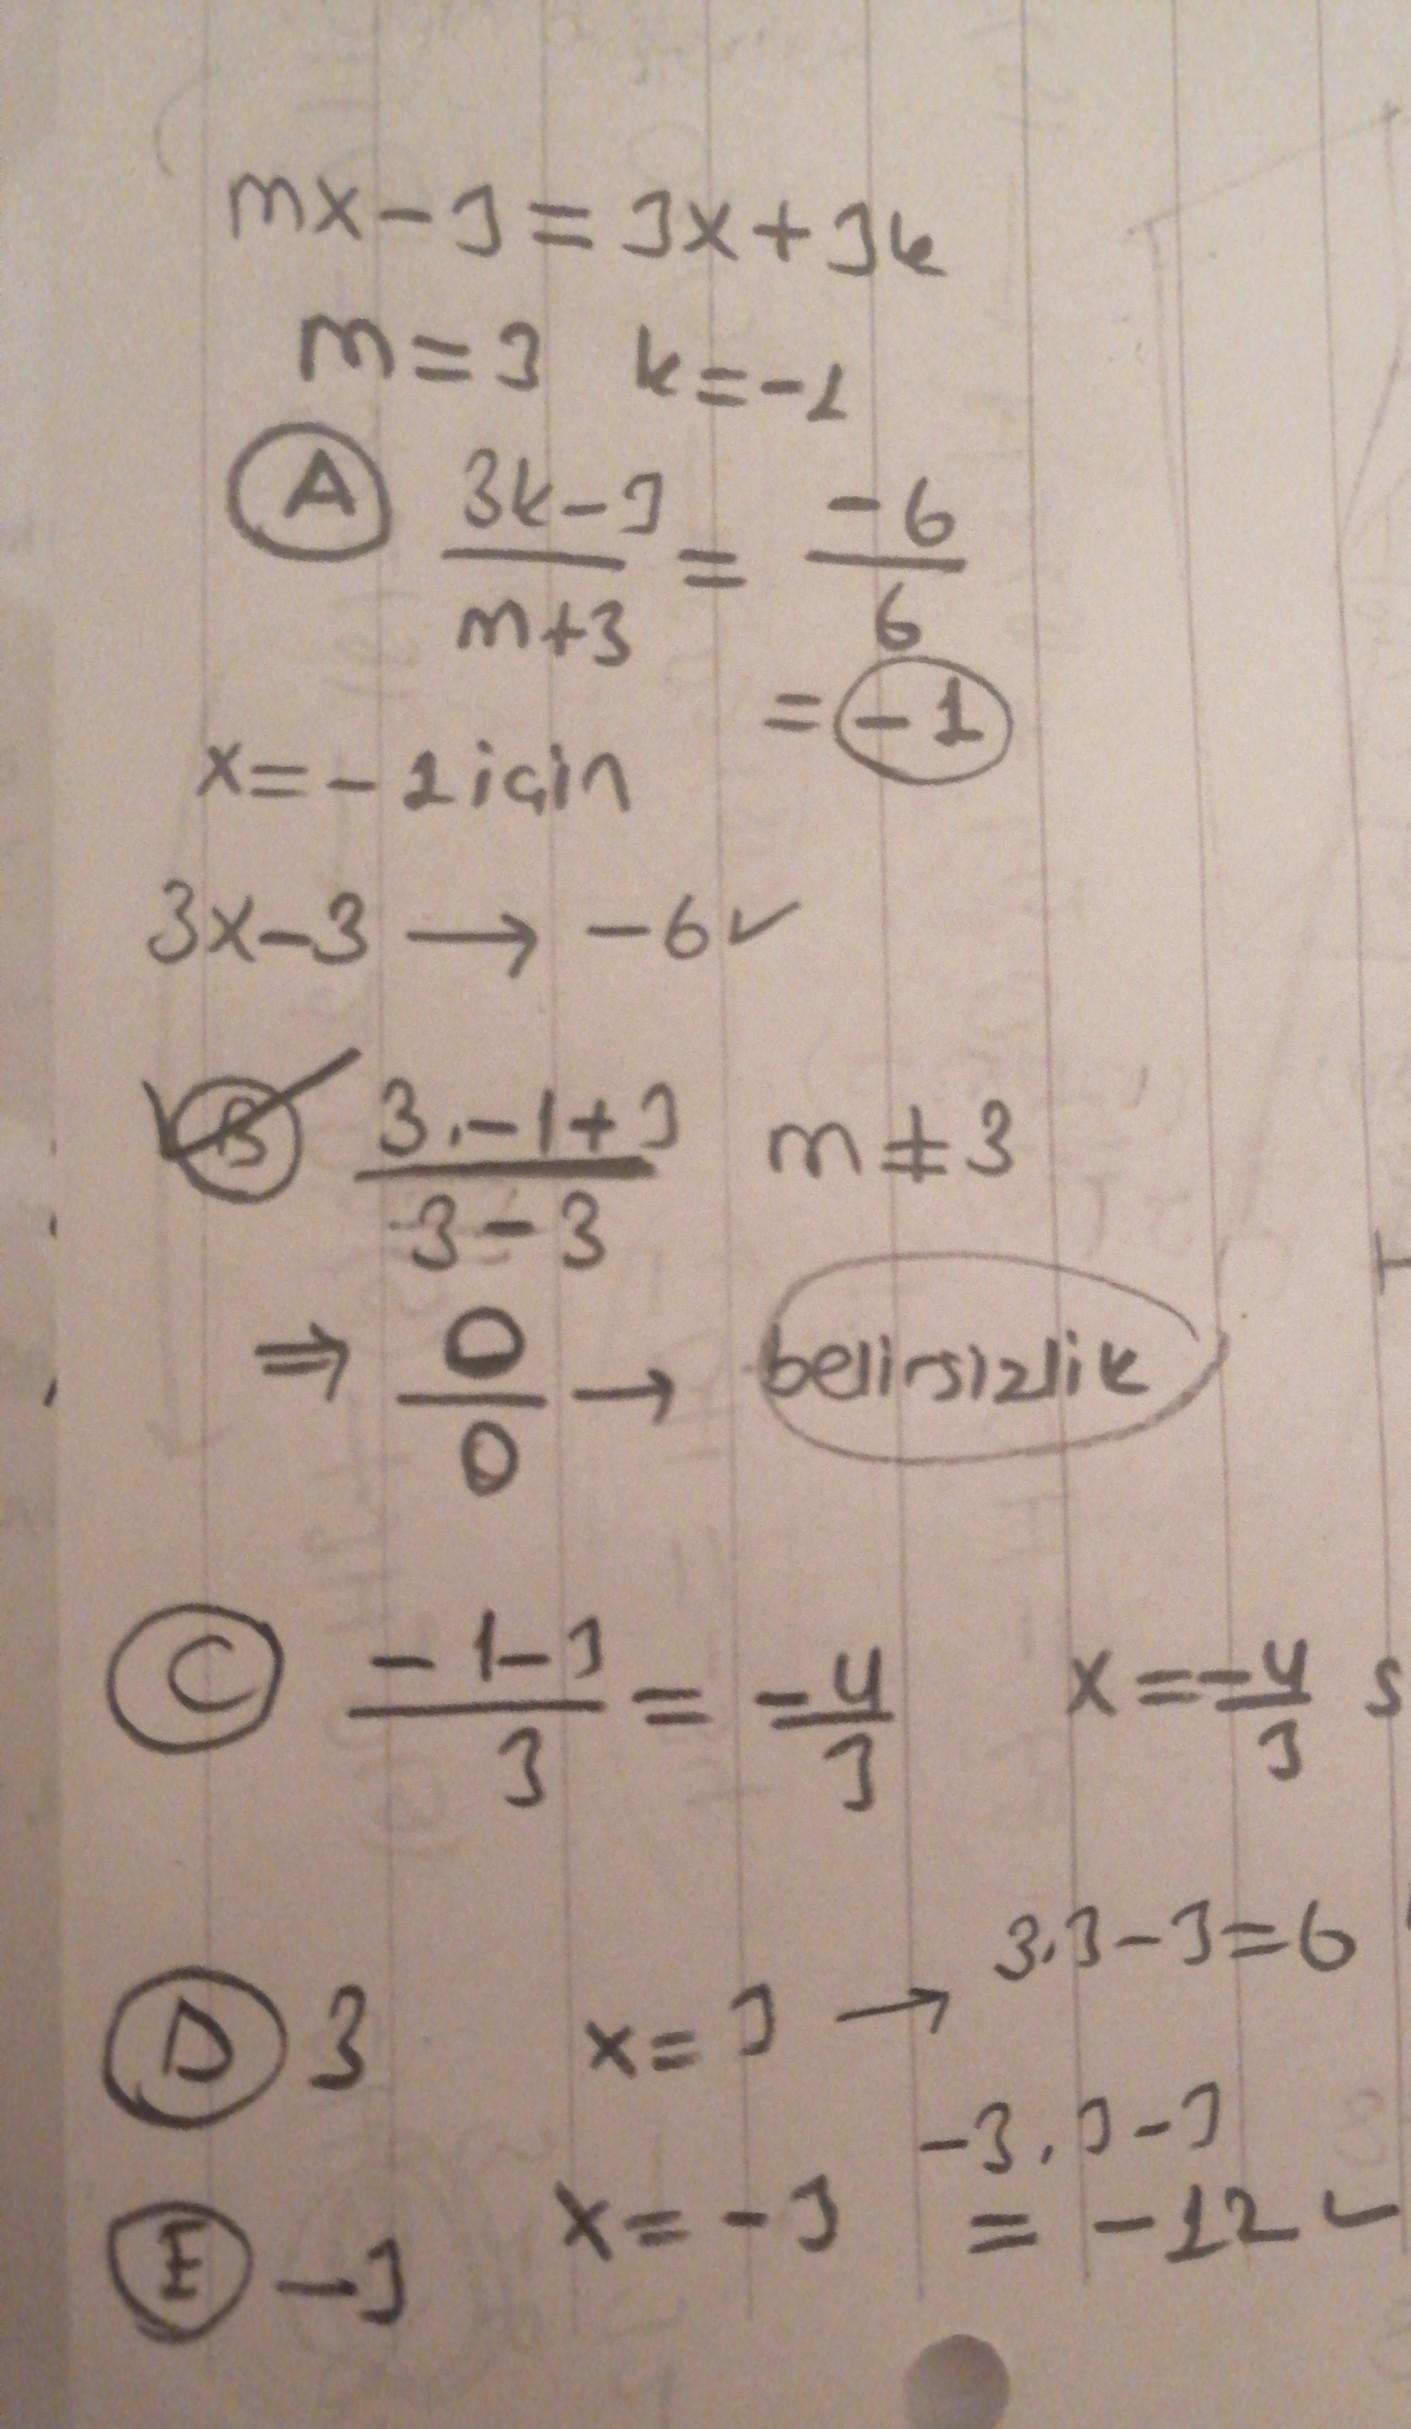 mx-3=3x+3k
m=3 k=-1
A 3k-3/m+3 = -6/6
=-1
x=-1 için
3x-3 → -6 ✓
B 3.-1+3/3-3 m≠3
⇒ 0/0 → belirsizlik
C -1-3/3 = -4/3 x=-4/3 s
D 3 x=3 → 3.3-3=6
E -3 x=-3 -3.3-3
=-12 ✓